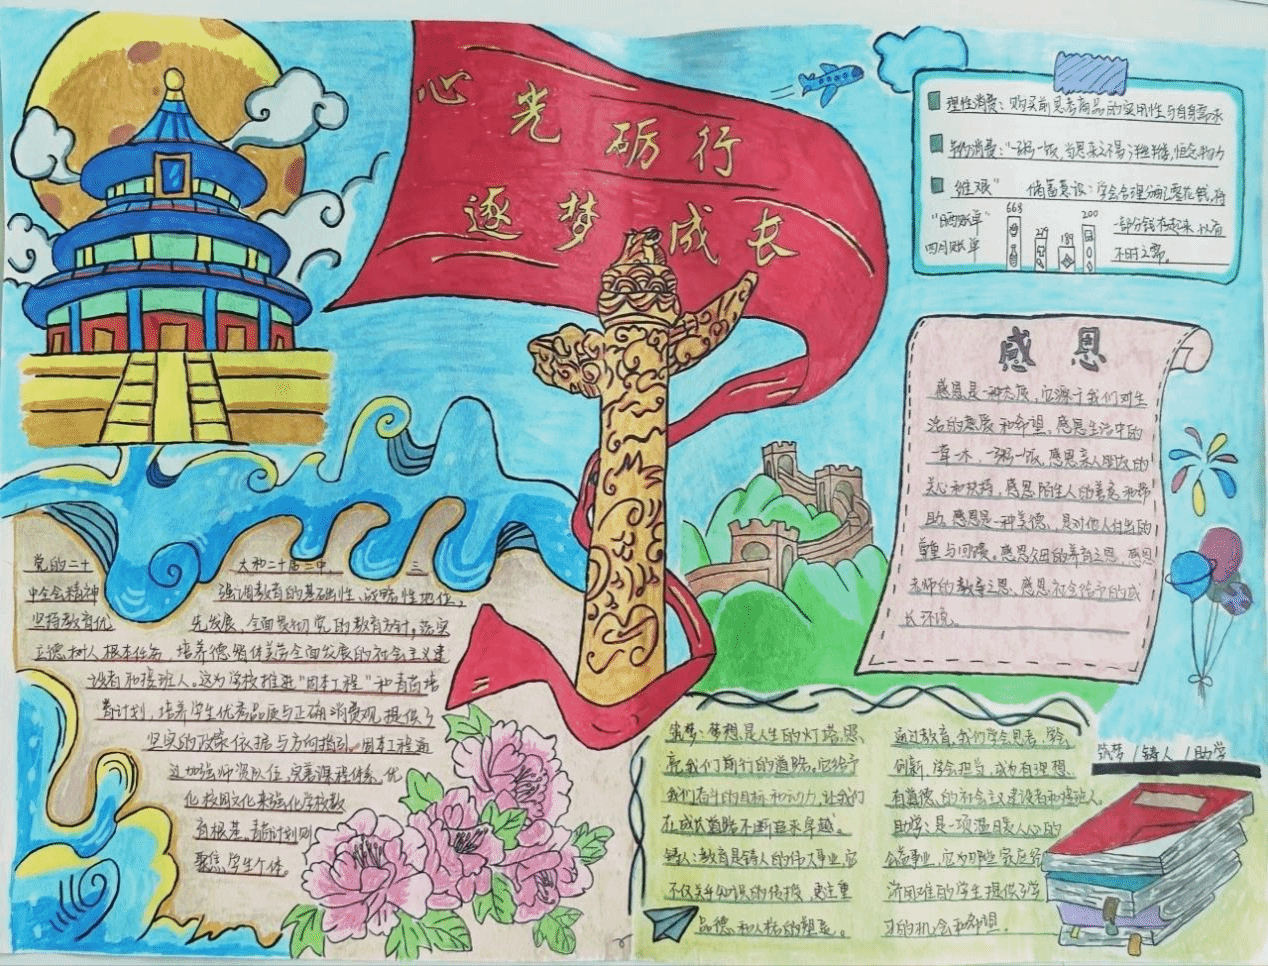 心光砺行
逐梦成长
理性消费：购买前思考商品的实用性与自身需求
节约消费："一粥一饭，当思来之不易；半丝半缕，恒念物力
维艰"
储蓄意识：学会合理分配零花钱，将
一部分钱存起来，以备
不时之需。
账单"
四月账单
668
229
189
200
感恩
感恩是一种态度，它源于我们对生
活的热爱和希望。感恩生活中的
一草一木、一粥一饭，感恩亲人朋友的
关心和扶持，感恩陌生人的善意和帮
助。感恩是一种美德，是对他人付出的
尊重与回馈。感恩父母的养育之恩、感恩
老师的教导之恩、感恩社会给予的成
长环境。
党的二十
大和二十届二中、
三
中全会精神
强调教育的基础性、战略性地位，
坚持教育优
先发展，全面贯彻党的教育方针，落实
立德树人根本任务，培养德智体美劳全面发展的社会主义建
设者和接班人。这为学校推进"固本工程"和青苗培
育计划，培养学生优秀品质与正确消费观提供了
坚实的政策依据与方向指引。固本工程通
过加强师资队伍、完善课程体系、优
化校园文化来强化学校教
育根基。青苗计划则
聚焦学生个体。
筑梦：梦想是人生的灯塔，照
亮我们前行的道路。它给予
我们奋斗的目标和动力，让我们
在成长道路不断追求卓越。
铸人：教育是铸人的伟大事业，它
不仅关乎知识的传授，更注重
品德和人格的塑造。
通过教育，我们学会思考、学会
创新、学会担当，成为有理想、
有道德的社会主义建设者和接班人。
助学：是一项温暖人心的
公益事业，它为那些家庭经
济困难的学生提供了学
习的机会和希望。
筑梦/铸人/助学